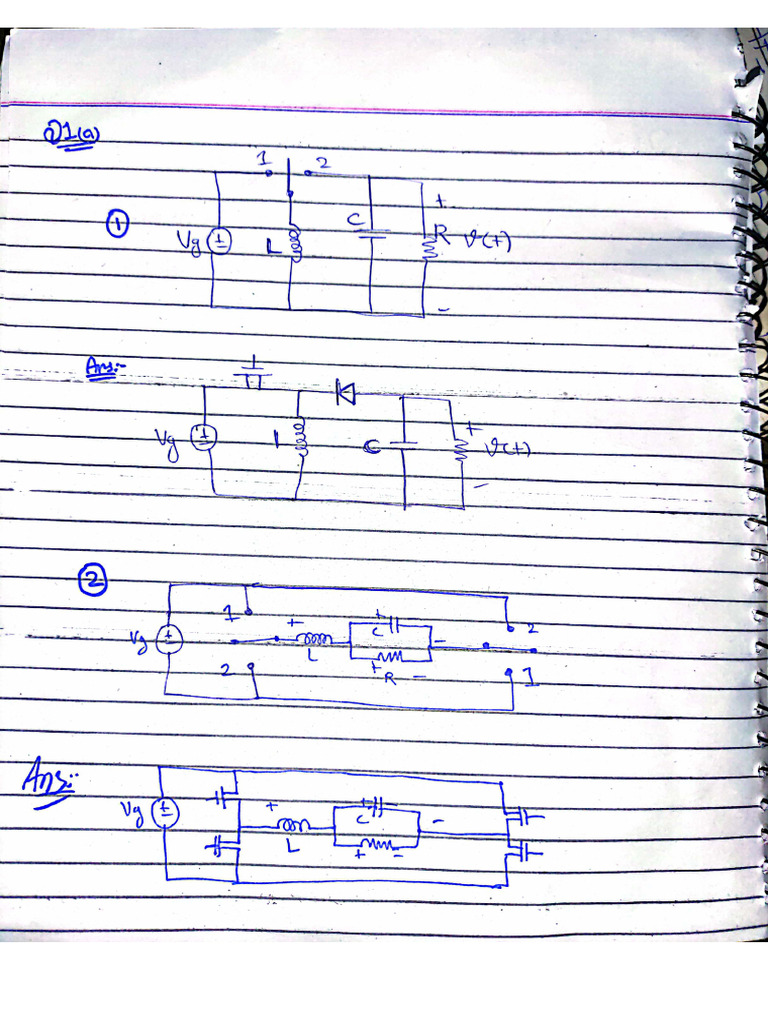 Q1(a)
1 2
①
Vg L C + R v(t) -
Ans:-
Vg L C + v(t) -
②
1 + + C - 2
Vg L
2 + R - 1
Ans:-
Vg + + C -
L + -